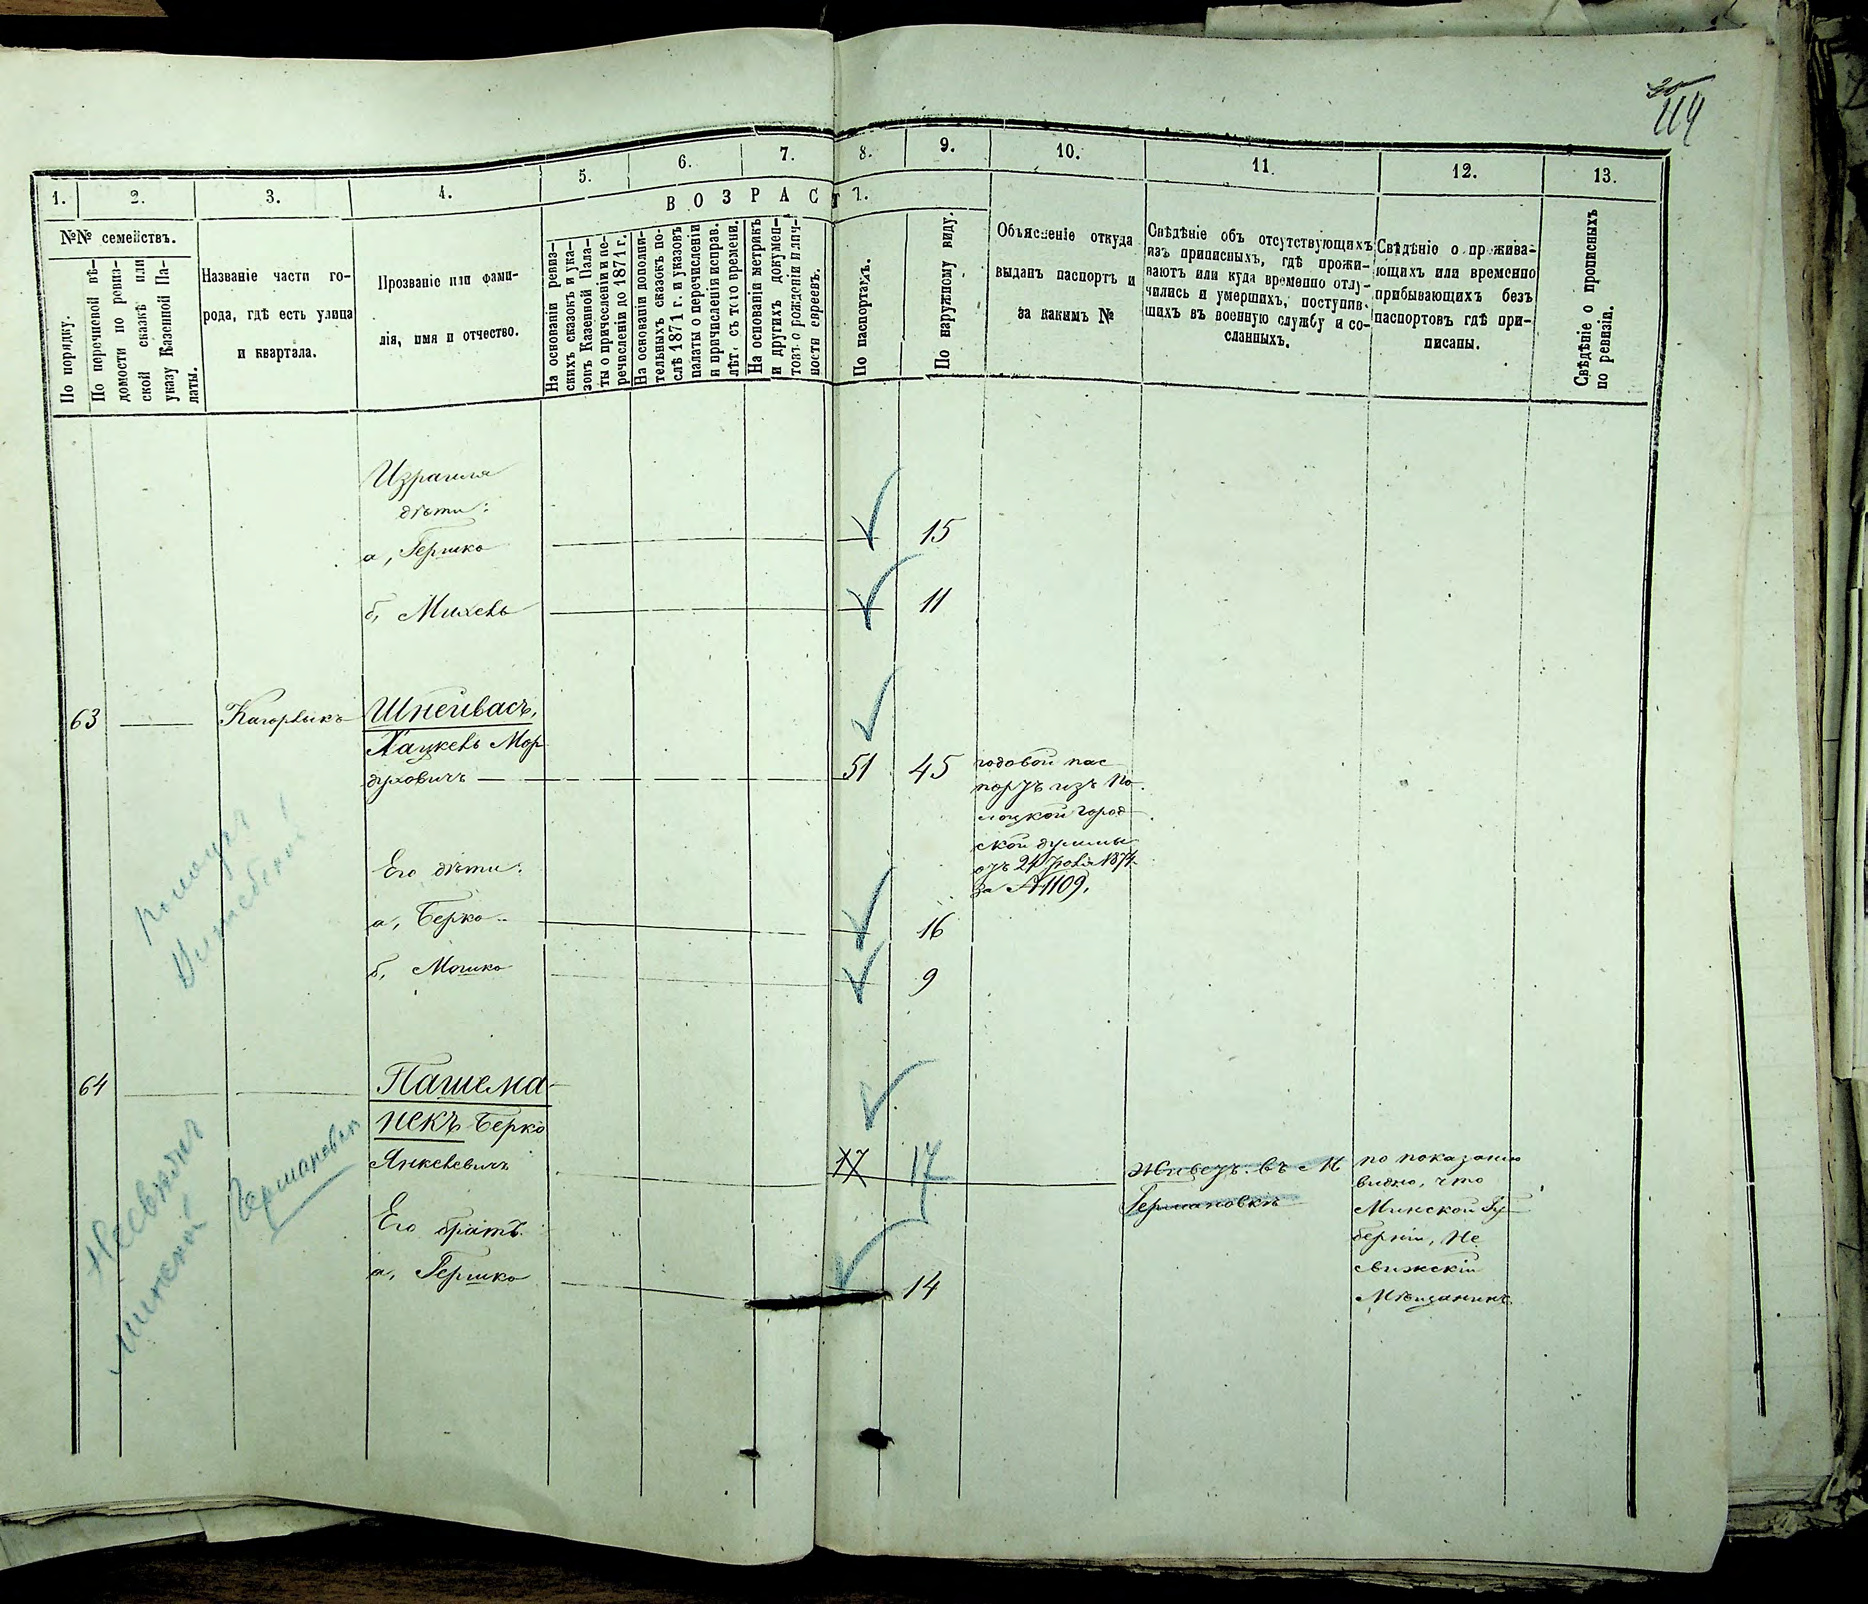 114
1. 2. 3. 4. 5. 6. 7. 8. 9. 10. 11. 12. 13.
ВОЗРАСТЪ.
№№ семействъ.
По порядку.
По перечневой вѣ-
домости по ревиз-
ской сказкѣ или
указу Казенной Па-
латы.
Названіе части го-
рода, гдѣ есть улица
и квартала.
Прозваніе или фами-
лія, имя и отчество.
На основаніи ревиз-
скихъ сказокъ и ука-
зовъ Казенной Пала-
ты о причисленіи и пе-
речисленіи до 1871 г.
На основаніи дополни-
тельныхъ сказокъ по-
слѣ 1871 г. и указовъ
палаты о перечисленіи
и причисленіи исправ.
лѣт. съ того времени.
На основаніи метрикъ
и другихъ докумен-
товъ о рожденіи и лич-
ности евреевъ.
По паспортамъ.
По наружному виду.
Объясненіе откуда
выданъ паспортъ и
за какимъ №
Свѣдѣніе объ отсутствующихъ
изъ приписныхъ, гдѣ прожи-
ваютъ или куда временно отлу-
чились и умершихъ, поступив-
шихъ въ военную службу и со-
сланныхъ.
Свѣдѣніе о прожива-
ющихъ или временно
прибывающихъ безъ
паспортовъ гдѣ при-
писаны.
Свѣдѣніе о прописныхъ
по ревизіи.
Израиля
дѣти:
а, Гершко 15
б, Михель 11
63 Кагорлыкъ Шнейвасъ,
Хацкель Мор
духовичъ 51 45
годовой пас
портъ изъ По
лоцкой город
ской думы
отъ 24 Іюля 1874
за №1109.
Его дѣти:
а, Берко 16
б, Мошко 9
полоцкъ
Витебской
64 Пашема-
некъ Берко
Янкелевичъ 17 17
Живетъ въ М
Германовкѣ
по показанію
видно, что
Минской Гу
берніи, Не
свижскій
Мѣщанинъ
Его братъ:
а, Гершко 14
Несвижъ
Минской